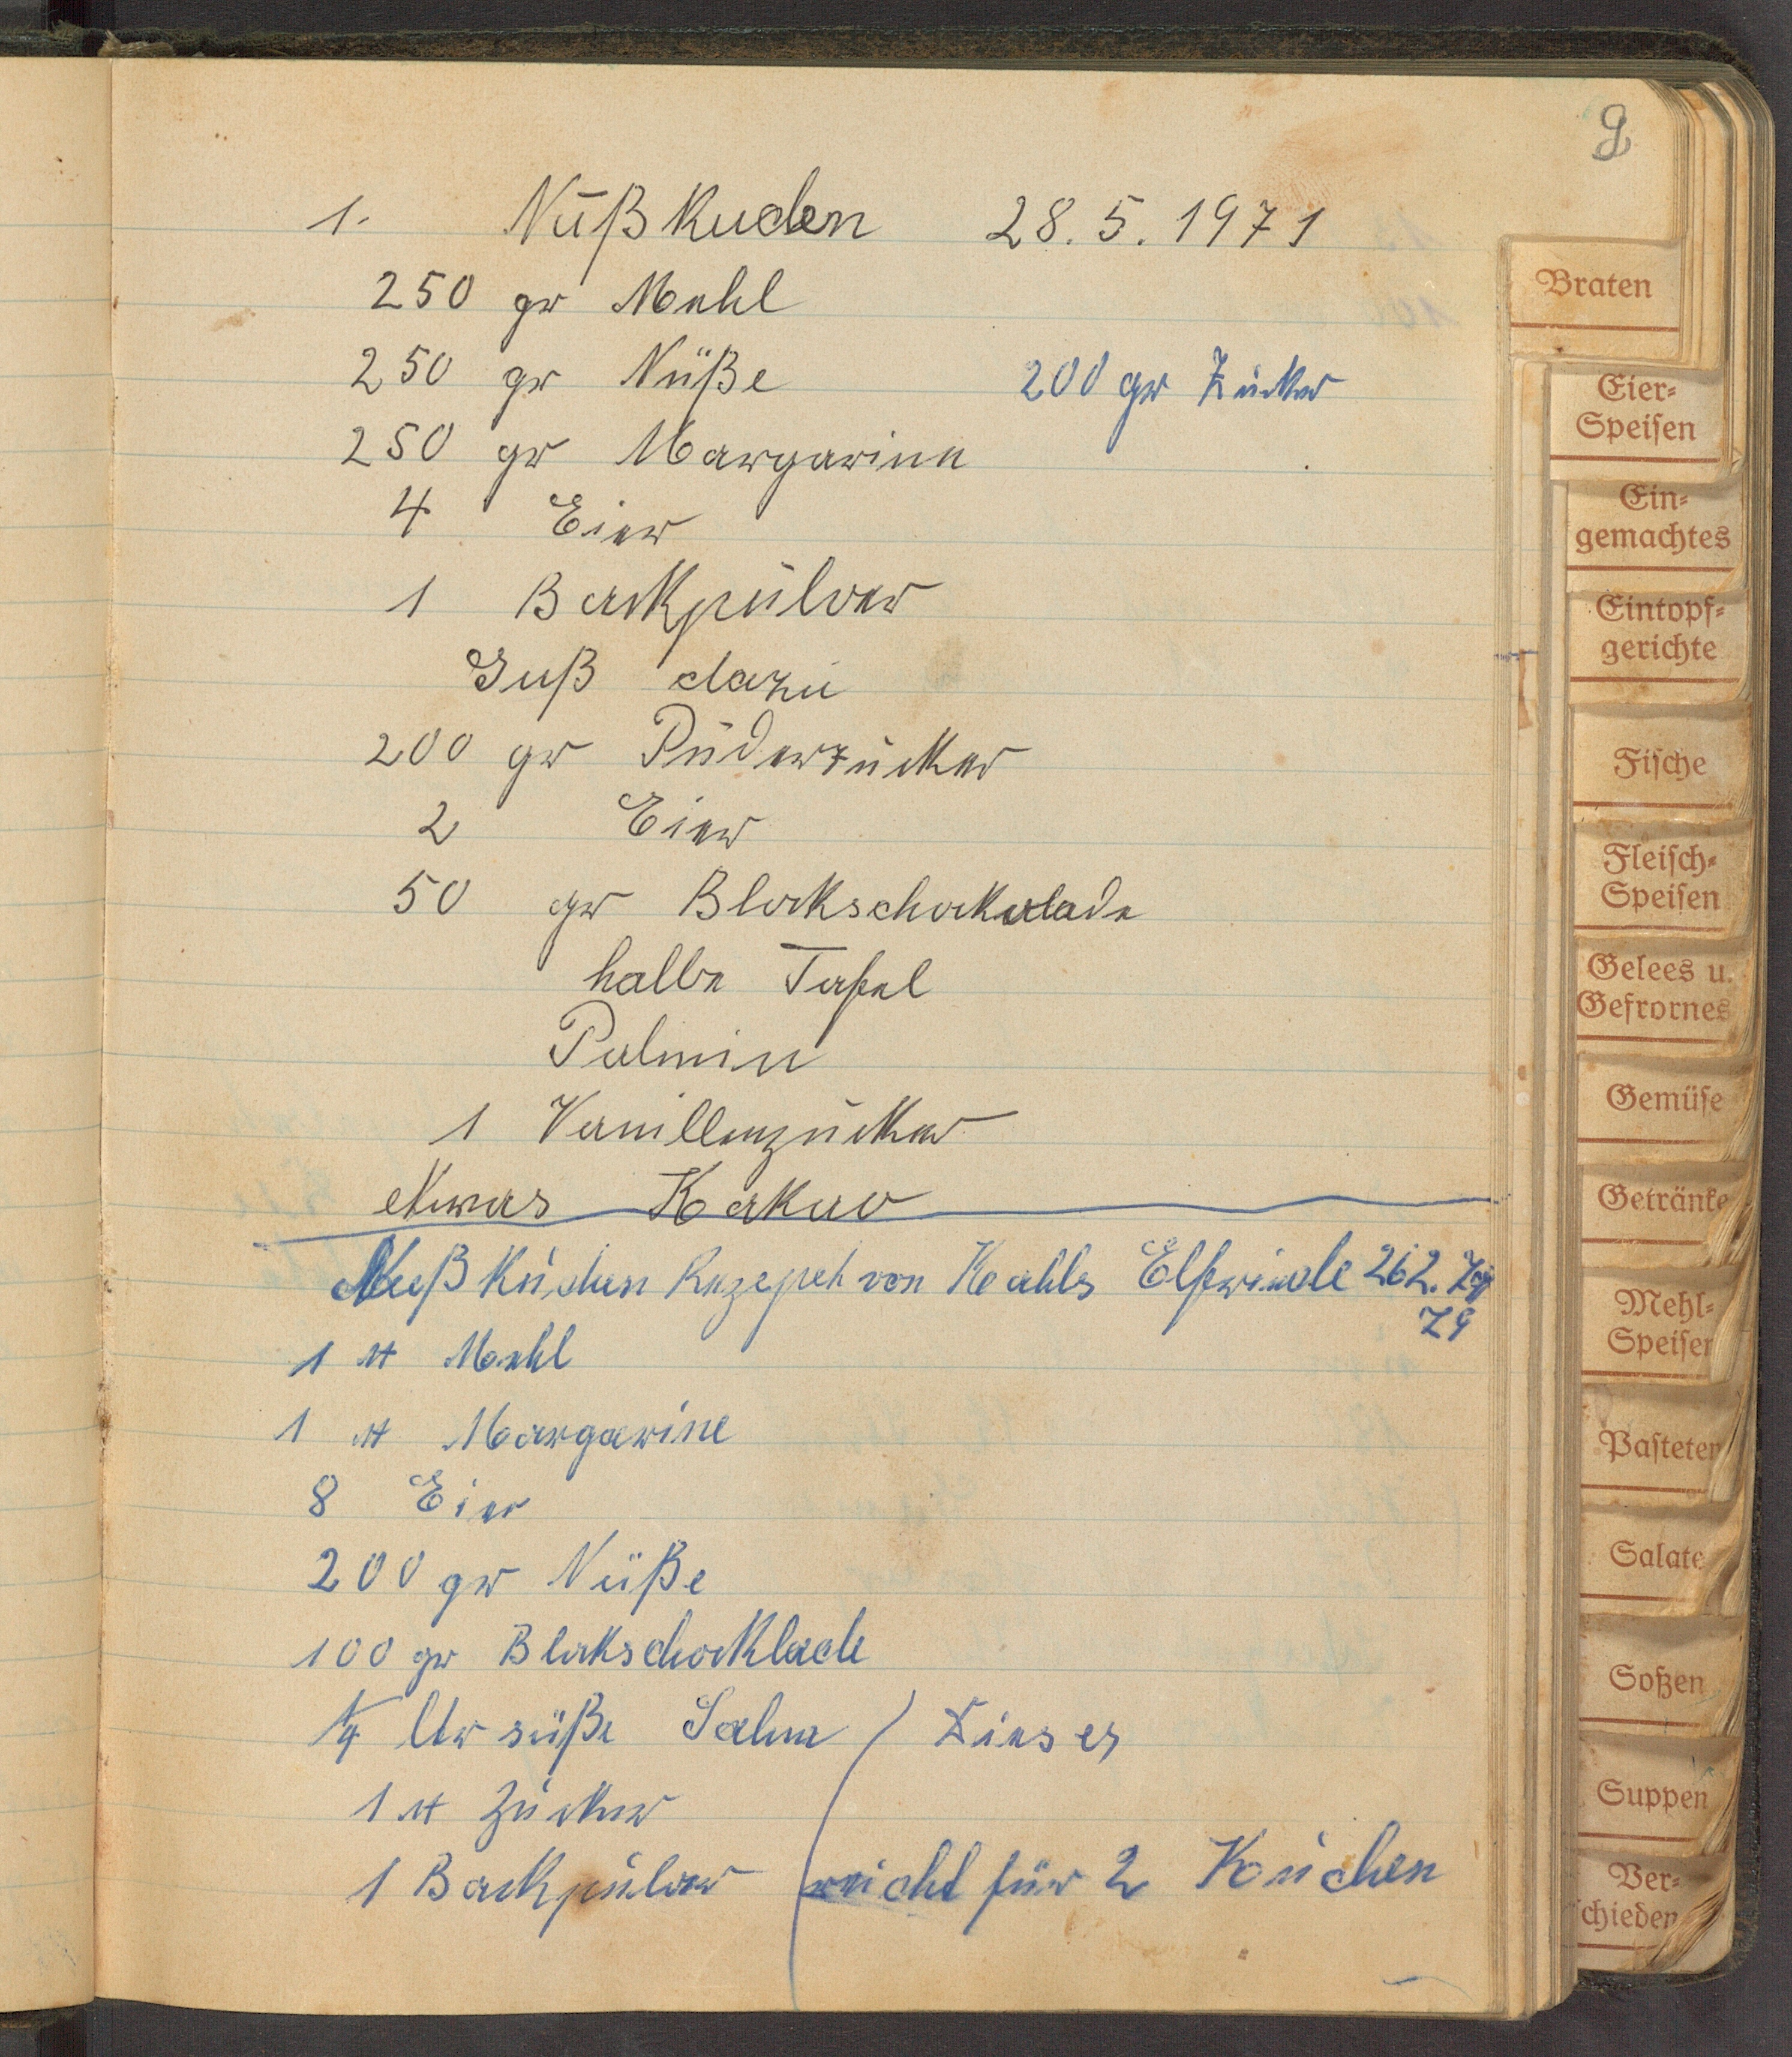 9
1. Nußkuchen 28.5.1971
250 gr Mehl
250 gr Nüße 200 gr Zucker
250 gr Margarine
4 Eier
1 Backpulver
Guß dazu
200 gr Puderzucker
2 Eier
50 gr Blockschockolade
halbe Tafel
Palmin
1 Vanillenzucker
etwas Kakao
Nußkuchen Rezepet von Kahls Elfriede
79
1 ℔ Mehl
1 ℔ Margarine
8 Eier
200 gr Nüße
100 gr Blockschocklade
1/4 ltr süße Sahne
1 ℔ Zucker
1 Backpulver reicht für 2 Kuchen
Braten
Eier-
Speisen
Ein-
gemachtes
Eintopf-
gerichte
Fische
Fleisch-
Speisen
Gelees u.
Gefrornes
Gemüse
Getränke
Mehl-
Speisen
Pasteten
Salate
Soßen
Suppen
Ver-
schieden